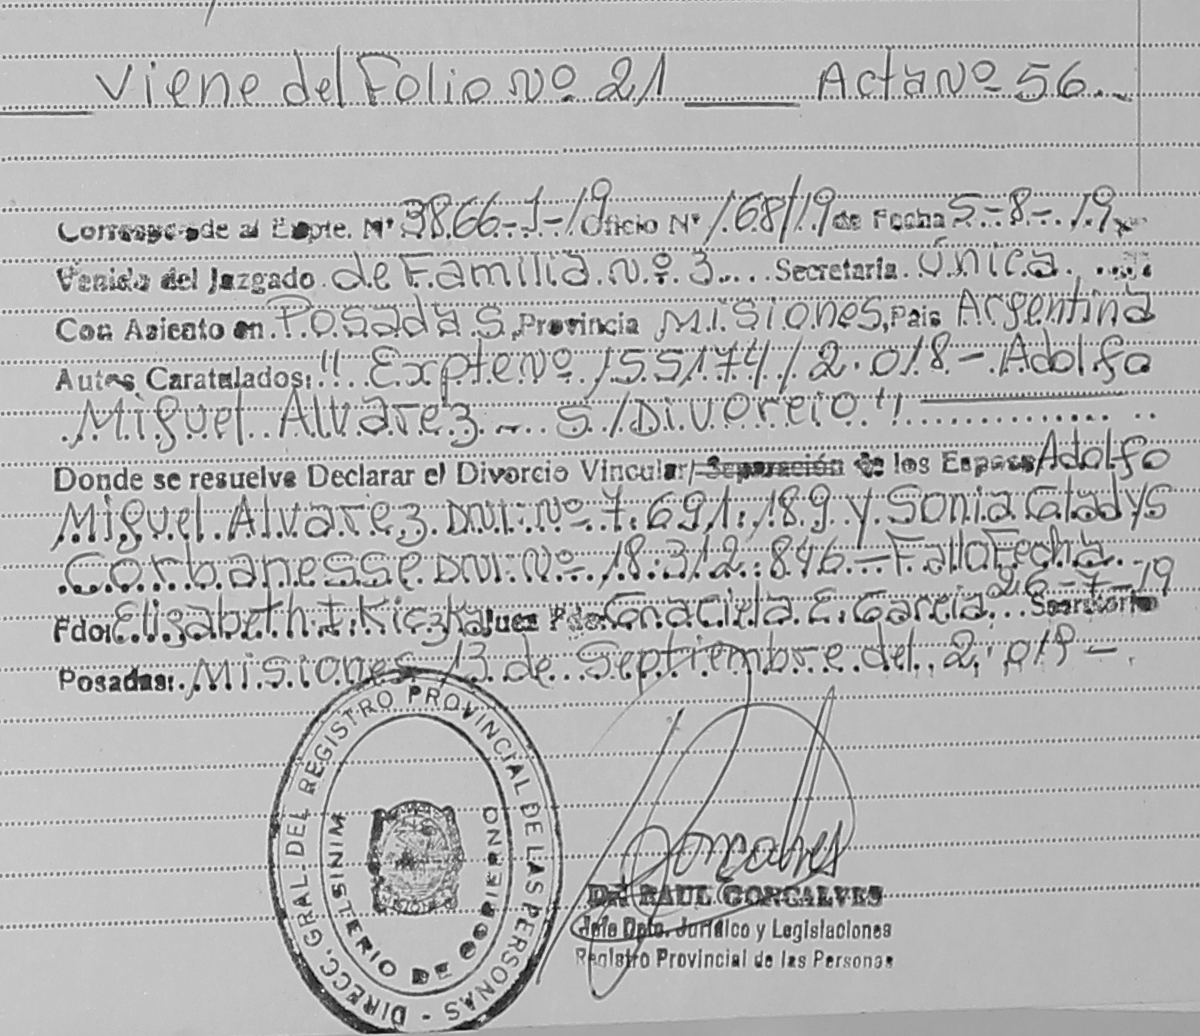 Viene del Folio Nº 21 ____ Acta Nº 56.-
Corresponde al Expte. Nº 3866-J-19 Oficio Nº 168/19 de Fecha 5-8-19
Venido del Juzgado de Familia Nº 3.... Secretaria Única.
Con Asiento en Posadas, Provincia Misiones, Pais Argentina
Autos Caratulados: "Expte Nº 155174/2.018- Adolfo
Miguel Alvarez - S/Divorcio"
Donde se resuelve Declarar el Divorcio Vincular/Separación de los Esposos Adolfo
Miguel Alvarez DNI: Nº 7.691.189 y Sonia Gladys
Corbanesse DNI: Nº 18.312.846 - Fallo Fecha
26-7-19
Fdo: Elisabeth I. Kiczka Juez Fdo: Graciela E. Garcia Secretario
Posadas: Misiones, 13 de Septiembre del 2.019-
DIRECC. GRAL. DEL REGISTRO PROVINCIAL DE LAS PERSONAS -
MINISTERIO DE GOBIERNO
Goncalves
Dr. RAUL GONCALVES
Jefe Dpto. Jurídico y Legislaciones
Registro Provincial de las Personas